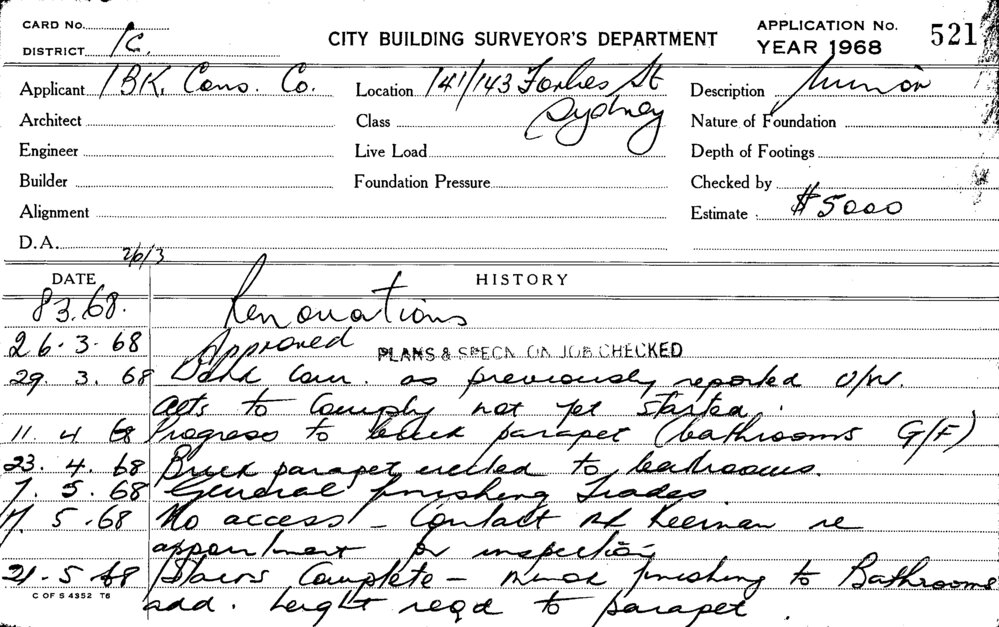 CARD No.
DISTRICT 1C.
CITY BUILDING SURVEYOR'S DEPARTMENT
APPLICATION No. 521
YEAR 1968
Applicant IBK. Cons. Co. Location 141/143 Forbes St Description Minor
Architect Class Sydney Nature of Foundation
Engineer Live Load Depth of Footings
Builder Foundation Pressure Checked by
Alignment Estimate $5000
D.A.
26/3
DATE HISTORY
8 3. 68. Renovations
26. 3. 68 Approved PLANS & SPECN ON JOB CHECKED
29. 3. 68 as previously reported O/W.
Acts to Comply not yet started.
11. 4 68 Progress to brick parapet (bathrooms G/F)
23. 4. 68 Brick parapet erected to bathrooms.
7. 5. 68 General finishing Trades
17. 5. 68 No access – Contact Mr Keernan re
appointment for inspection
21. 5 68 Stairs Complete – minor finishing to Bathrooms
C OF S 4352 T6
add. height reqd to parapet.